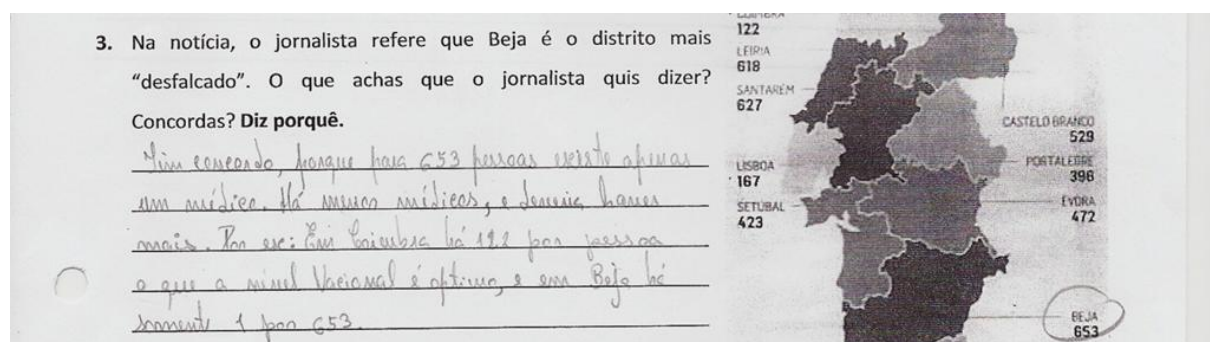 3. Na notícia, o jornalista refere que Beja é o distrito mais
“desfalcado”. O que achas que o jornalista quis dizer?
Concordas? Diz porquê.
Sim concordo, porque para 653 pessoas existe apenas
um médico. Há menos médicos, e deveria haver
mais. Por ex: Em Coimbra há 122 por pessoa
o que a nivel Nacional é optimo, e em Beja há
somente 1 por 653.
COIMBRA
122
LEIRIA
618
SANTARÉM
627
CASTELO BRANCO
529
PORTALEGRE
396
LISBOA
167
ÉVORA
472
SETÚBAL
423
BEJA
653